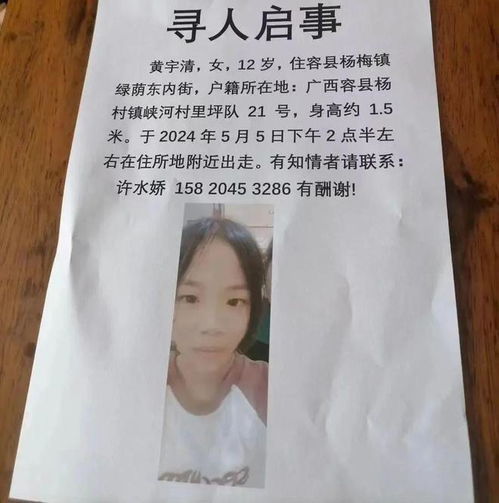 寻人启事
黄宇清，女，12 岁，住容县杨梅镇
绿荫东内街，户籍所在地：广西容县杨
村镇峡河村里坪队 21 号，身高约 1.5
米。于 2024 年 5 月 5 日下午 2 点半左
右在住所地附近出走。有知情者请联系：
许水娇 158 2045 3286 有酬谢!